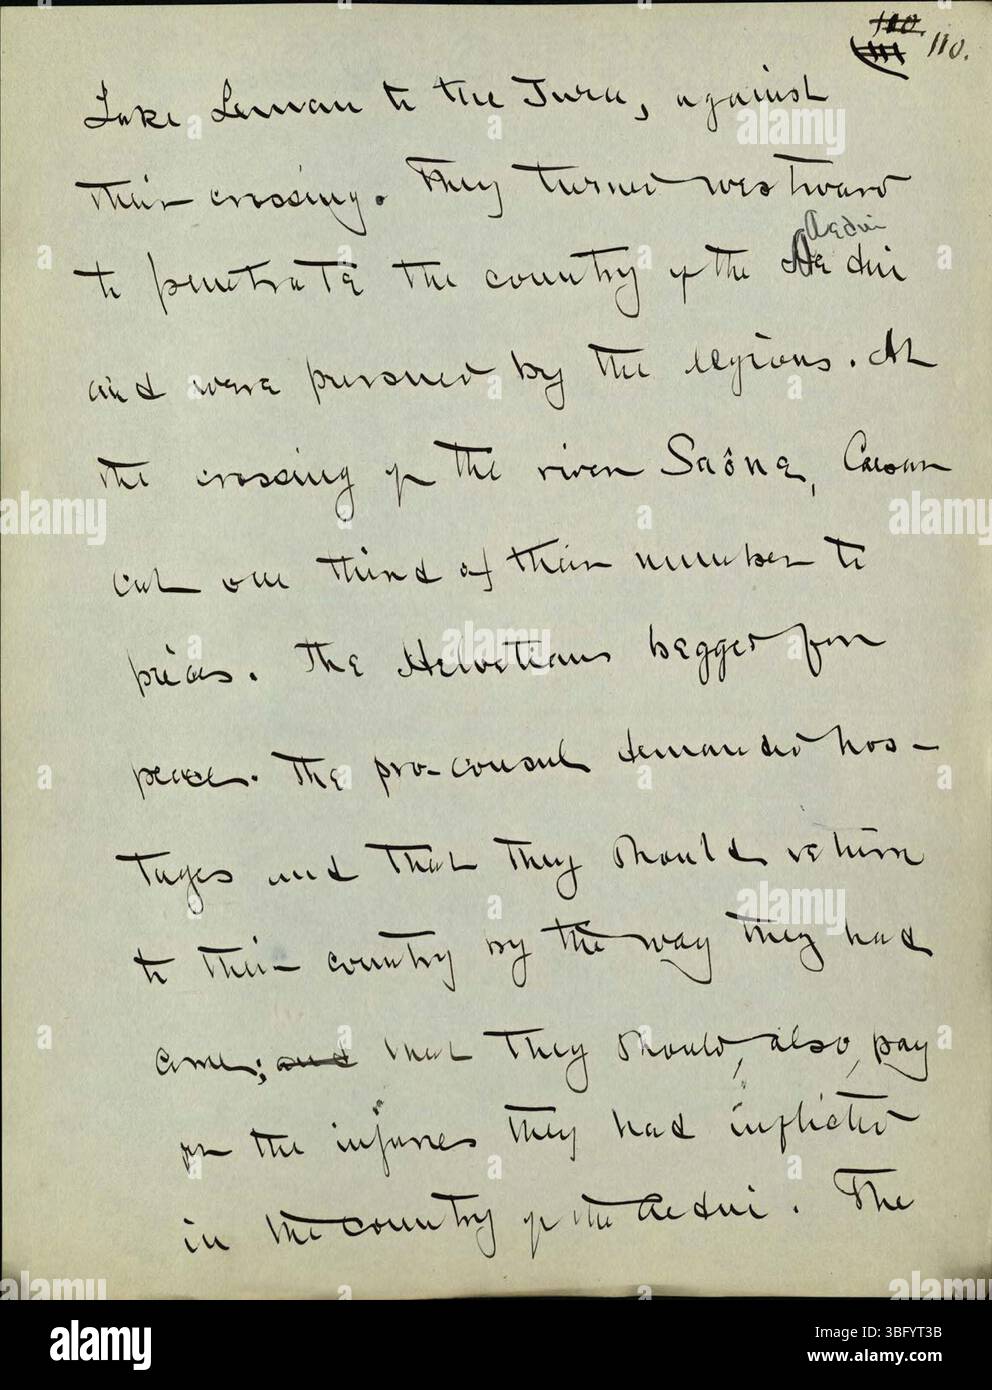 100.
111 110.
Lake Leman to the Jura, against
their crossing. They turned westward
Aedui
to penetrate the country of the Aedui
and were pursued by the legions. At
the crossing of the river Saône, Caesar
cut one third of their number to
pieces. The Helvetians begged for
peace. The pro-consul demanded hos-
tages and that they should return
to their country by the way they had
come; and that they should, also, pay
for the injuries they had inflicted
in the country of the Aedui. The
alamy
Image ID: 3BFYT3B
www.alamy.com